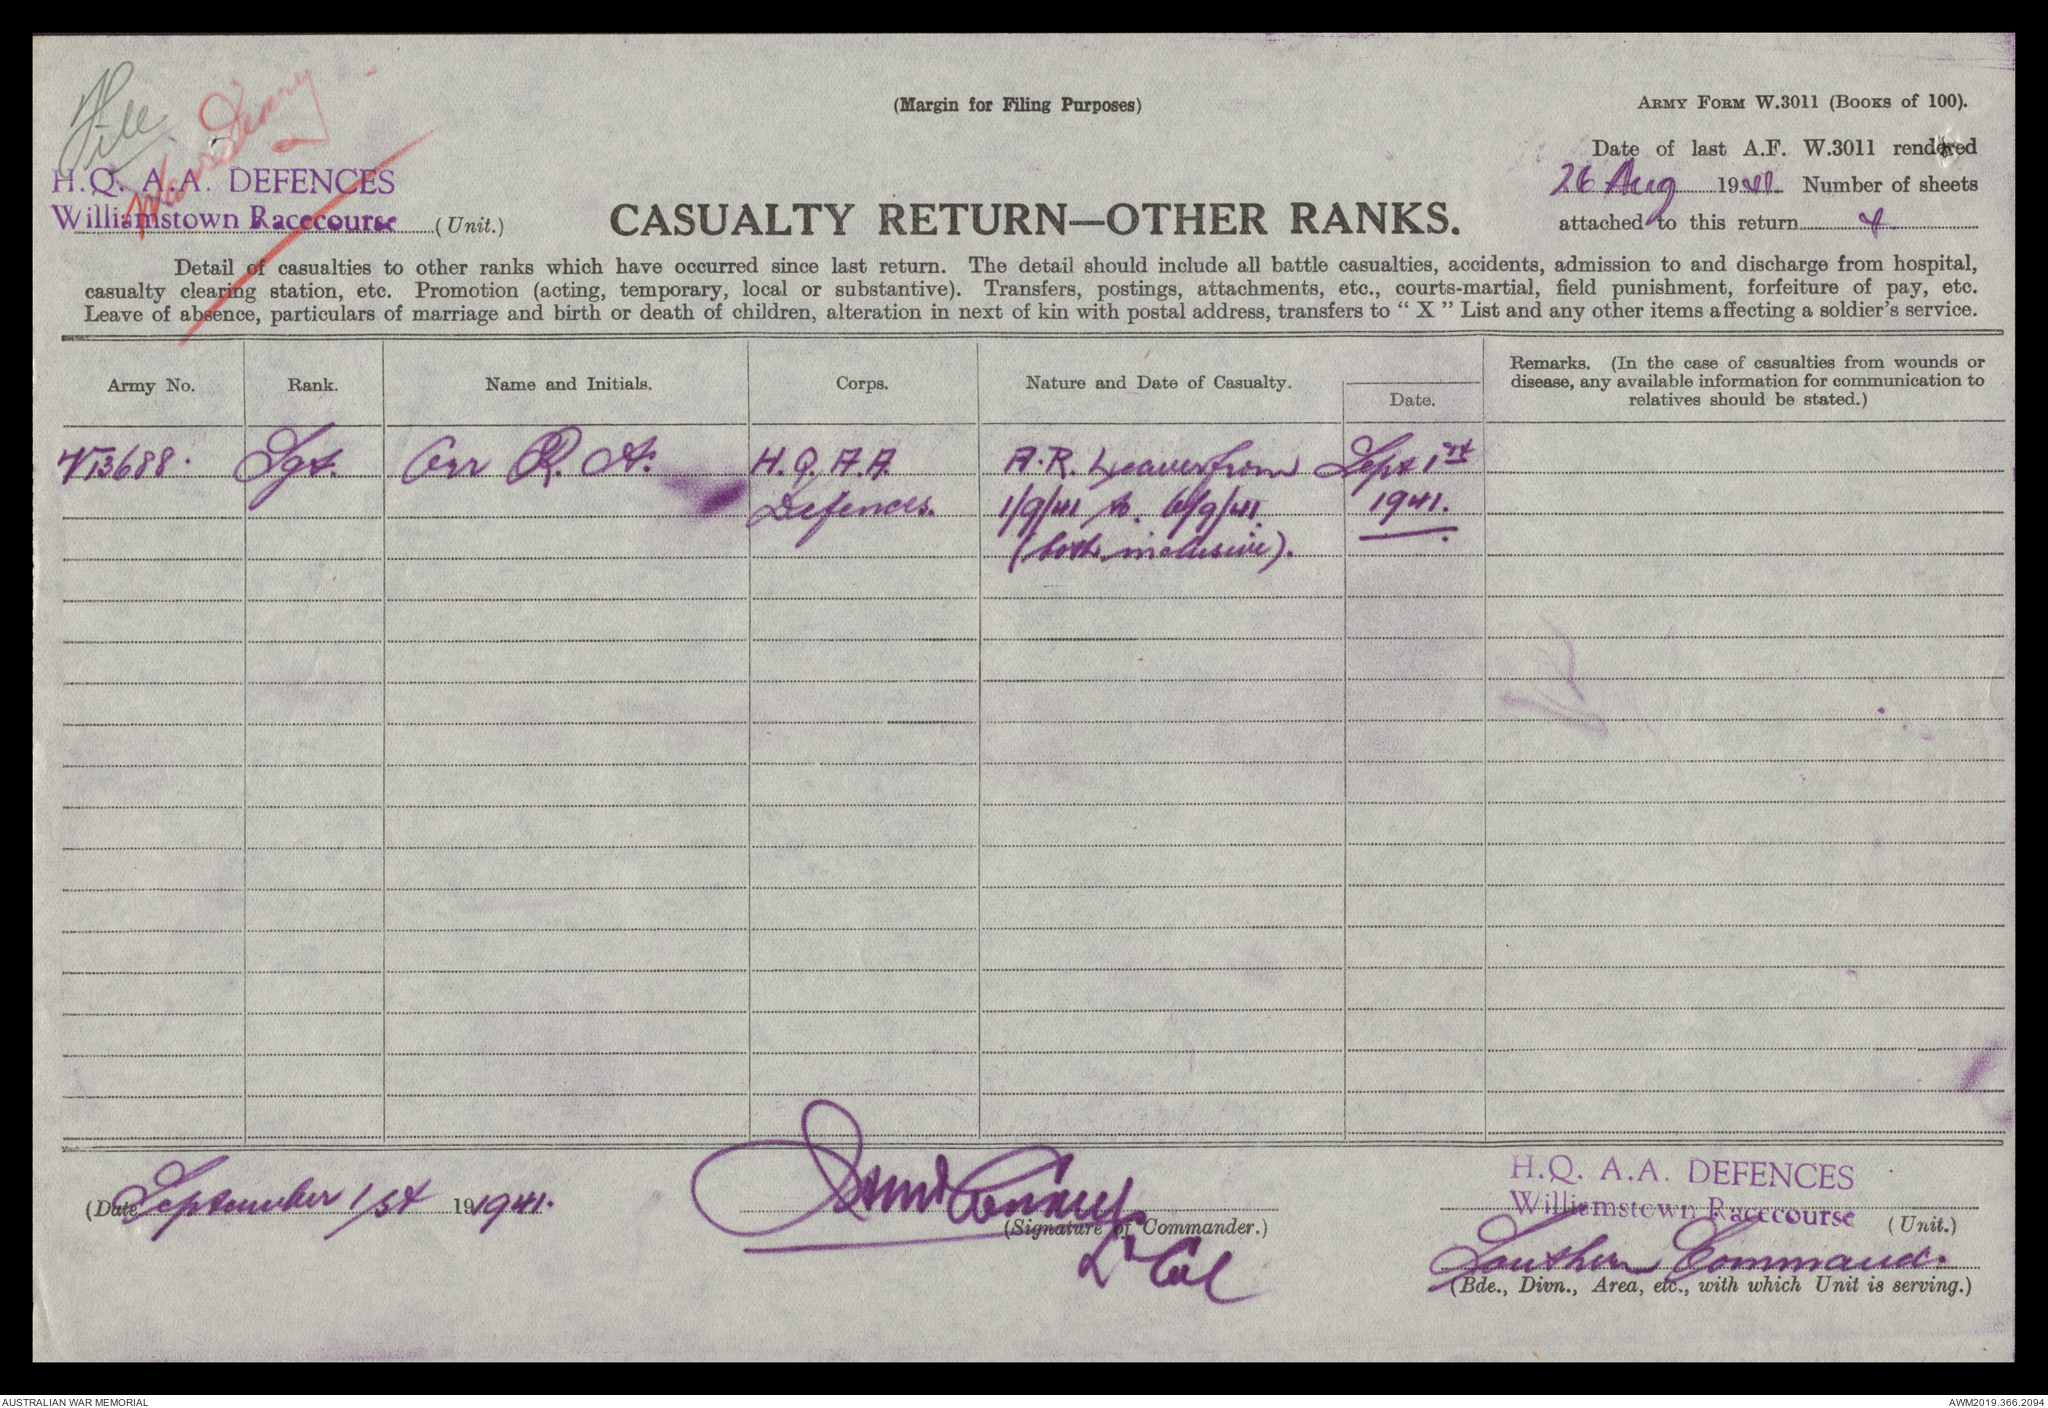 File
War Diary
(Margin for Filing Purposes)
ARMY FORM W.3011 (BOOKS of 100).
Date of last A.F. W.3011 rendered
26 Aug 1941. Number of sheets
attached to this return
H.Q. A.A. DEFENCES
Williamstown Racecourse (Unit.)
CASUALTY RETURN—OTHER RANKS.
Detail of casualties to other ranks which have occurred since last return. The detail should include all battle casualties, accidents, admission to and discharge from hospital,
casualty clearing station, etc. Promotion (acting, temporary, local or substantive). Transfers, postings, attachments, etc., courts-martial, field punishment, forfeiture of pay, etc.
Leave of absence, particulars of marriage and birth or death of children, alteration in next of kin with postal address, transfers to “ X ” List and any other items affecting a soldier’s service.
Army No. Rank. Name and Initials. Corps. Nature and Date of Casualty. Date. Remarks. (In the case of casualties from wounds or
disease, any available information for communication to
relatives should be stated.)
V13688. Sgt. Orr R. A. H.Q. A.A. A.R. Leave from Sept 1st
Defences. 1/9/41 to 6/9/41 1941.
(both inclusive).
(Date September 1st 19 1941.
(Signature of Commander.)
Lt Col
H.Q. A.A. DEFENCES
Williamstown Racecourse (Unit.)
Southern Command.
(Bde., Divn., Area, etc., with which Unit is serving.)
AUSTRALIAN WAR MEMORIAL
AWM2019.366.2094